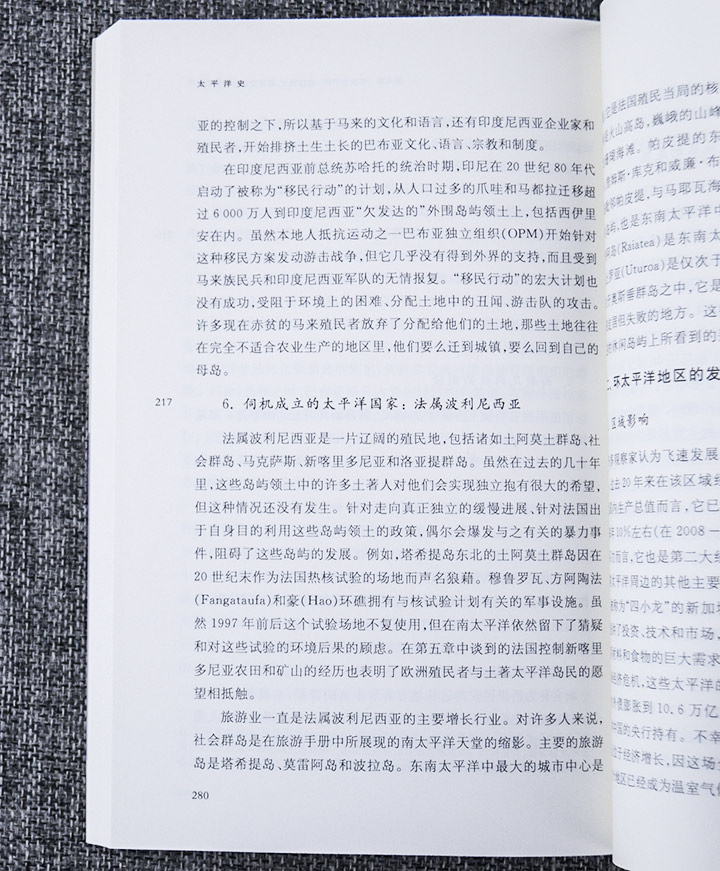 太平洋史
亚的控制之下，所以基于马来的文化和语言，还有印度尼西亚企业家和
殖民者，开始排挤土生土长的巴布亚文化、语言、宗教和制度。
在印度尼西亚前总统苏哈托的统治时期，印尼在 20 世纪 80 年代
启动了被称为“移民行动”的计划，从人口过多的爪哇和马都拉迁移超
过 6 000 万人到印度尼西亚“欠发达的”外围岛屿领土上，包括西伊里
安在内。虽然本地人抵抗运动之一巴布亚独立组织(OPM)开始针对
这种移民方案发动游击战争，但它几乎没有得到外界的支持，而且受到
马来族民兵和印度尼西亚军队的无情报复。“移民行动”的宏大计划也
没有成功，受阻于环境上的困难、分配土地中的丑闻、游击队的攻击。
许多现在赤贫的马来殖民者放弃了分配给他们的土地，那些土地往往
在完全不适合农业生产的地区里，他们要么迁到城镇，要么回到自己的
母岛。
217
6. 伺机成立的太平洋国家：法属波利尼西亚
法属波利尼西亚是一片辽阔的殖民地，包括诸如土阿莫土群岛、社
会群岛、马克萨斯、新喀里多尼亚和洛亚提群岛。虽然在过去的几十年
里，这些岛屿领土中的许多土著人对他们会实现独立抱有很大的希望，
但这种情况还没有发生。针对走向真正独立的缓慢进展、针对法国出
于自身目的利用这些岛屿领土的政策，偶尔会爆发与之有关的暴力事
件，阻碍了这些岛屿的发展。例如，塔希提岛东北的土阿莫土群岛因在
20 世纪末作为法国热核试验的场地而声名狼藉。穆鲁罗瓦、方阿陶法
(Fangataufa)和豪(Hao)环礁拥有与核试验计划有关的军事设施。虽
然 1997 年前后这个试验场地不复使用，但在南太平洋依然留下了猜疑
和对这些试验的环境后果的顾虑。在第五章中谈到的法国控制新喀里
多尼亚农田和矿山的经历也表明了欧洲殖民者与土著太平洋岛民的愿
望相抵触。
旅游业一直是法属波利尼西亚的主要增长行业。对许多人来说，
社会群岛是在旅游手册中所展现的南太平洋天堂的缩影。主要的旅游
岛是塔希提岛、莫雷阿岛和波拉岛。东南太平洋中最大的城市中心是
280
是法国殖民当局的核
火山高岛，巍峨的山峰
海滩。帕皮提的东
斯·库克和威廉·布
帕皮提，与马耶瓦海
，也是东南太平洋中
岛(Raiatea)是东南太
罗亚(Uturoa)是仅次于
奥斯垂群岛之中，它是
但失败的地方。这
休闲岛屿上所看到的
环太平洋地区的发
区域影响
观察家认为飞速发展
去20年来在该区域经
生产总值而言，它已
10%左右(在 2008—
而言，它也是第二大经
太平洋周边的其他主要
称为“四小龙”的新加坡
了投资、技术和市场，
材料和食物的巨大需求
经济危机，这些太平洋的
债膨胀到 10.6 万亿
国的央行持有。不幸
于经济增长，因这场
地区已经成为温室气